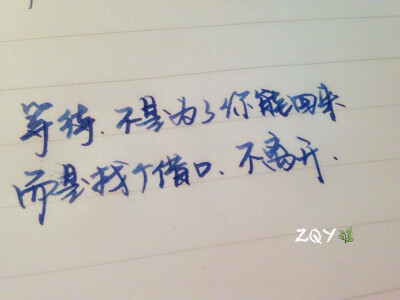 等待.不是为了你能回来
而是找个借口.不离开.
ZQY